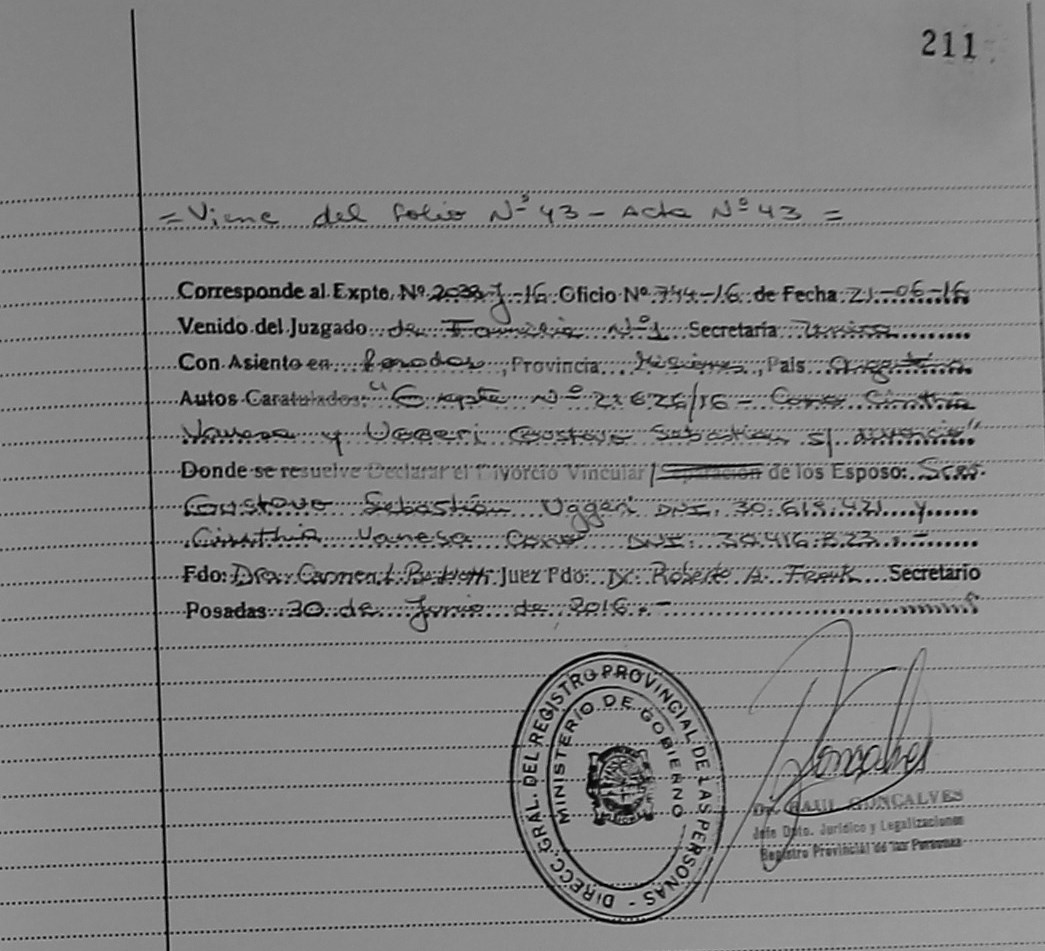 211
= Viene del folio Nº 43 - Acta Nº 43 =
Corresponde al Expte. Nº 2033-J-16 Oficio Nº 744-16 de Fecha 21-06-16
Venido del Juzgado de Familia Nº 1 Secretaría Unica
Con Asiento en Posadas, Provincia Misiones, País Argentina
Autos Caratulados: "Expte Nº 21626/16 - Cinthia
Vanesa y Uggeri Gustavo Sebastian s/ divorcio"
Donde se resuelve Declarar el Divorcio Vincular / Separación de los Esposo: Sres.
Gustavo Sebastián Uggeri DNI. y
Cinthia Vanesa DNI:
Fdo: Dra. Juez Fdo: Dr. Roberto A. Secretario
Posadas 30 de Junio de 2016.-
DIRECC. GRAL. DEL REGISTRO PROVINCIAL DE LAS PERSONAS -
MINISTERIO DE GOBIERNO
Dr. RAUL GONÇALVES
Jefe Dpto. Jurídico y Legalizaciones
Registro Provincial de las Personas